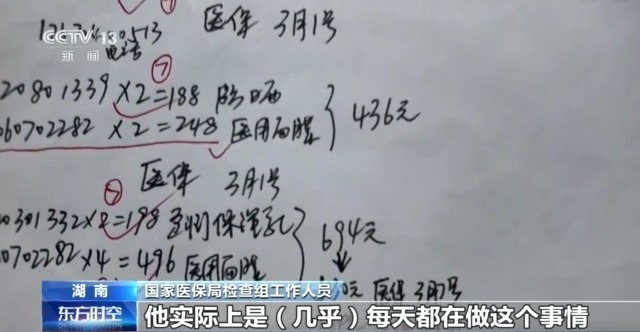 CCTV 13
新闻
513 医保 3月1号
电话
⑦
20801339 ×2=188 防晒
060702282 ×2=248 医用面膜 } 436元
医保 3月1号
0301332×2=198
0702282×4=496 医用面膜 } 694元
医保
湖南
国家医保局检查组工作人员
东方时空
他实际上是（几乎）每天都在做这个事情